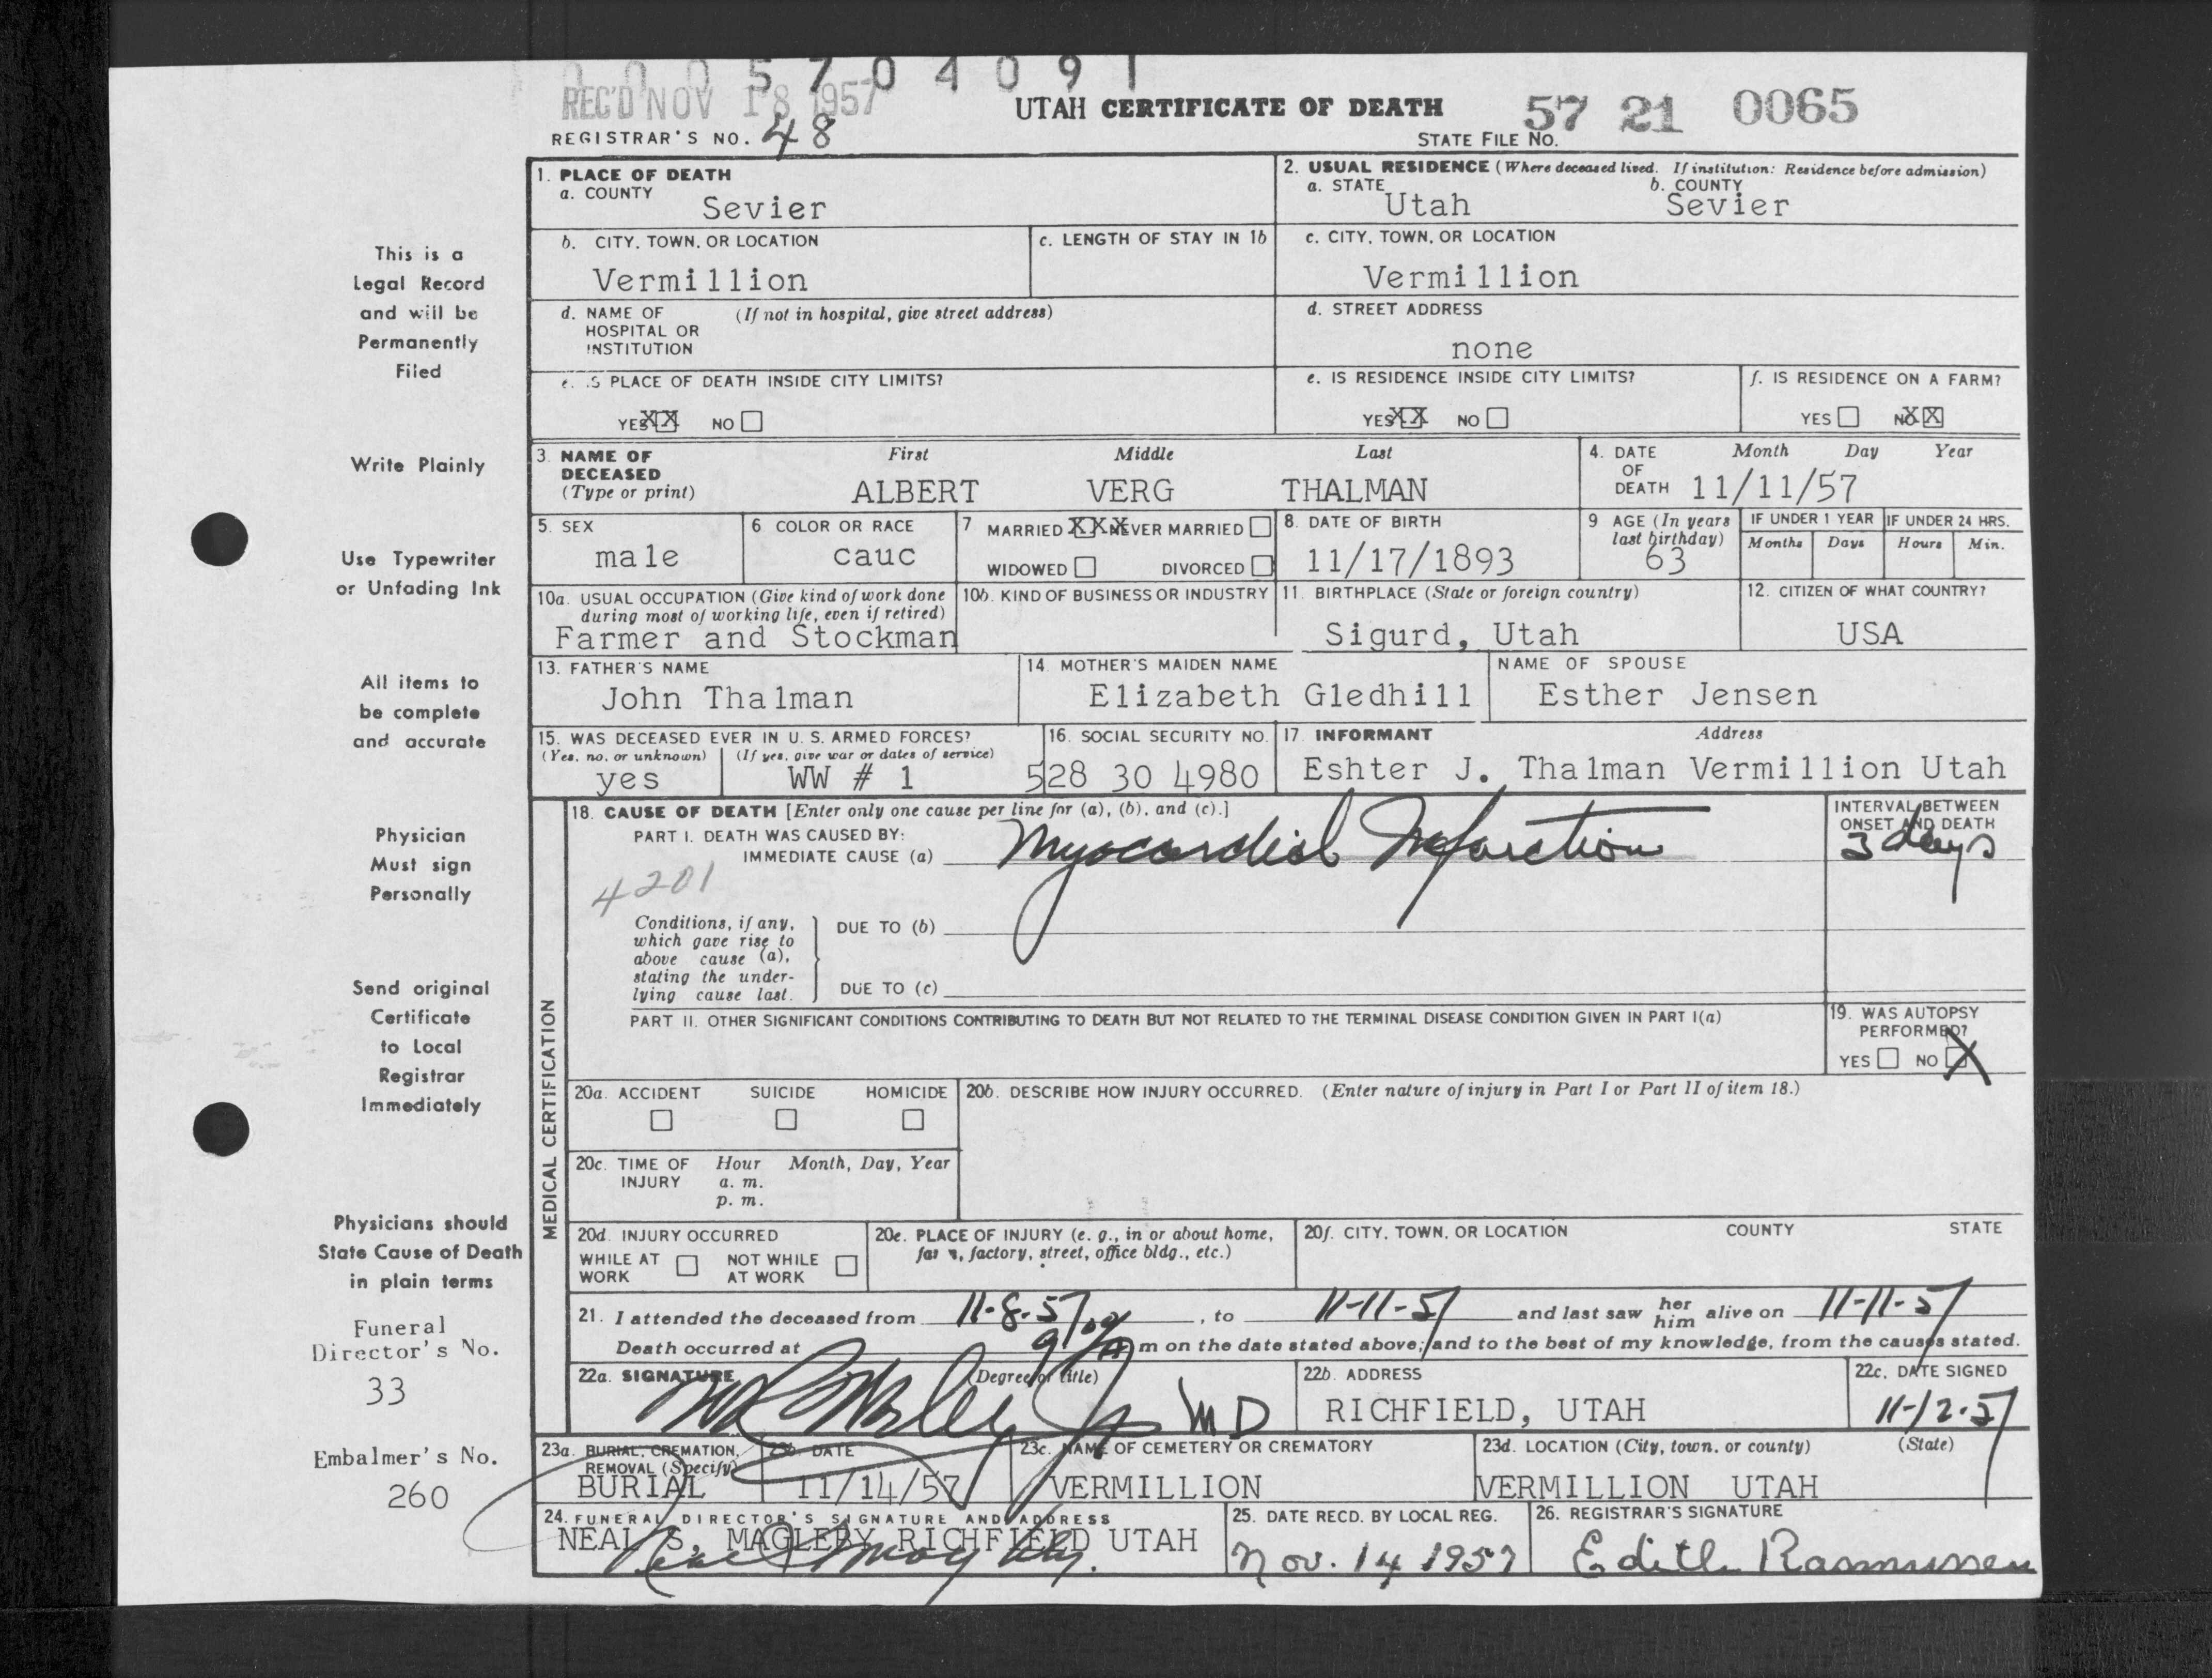 0 0 0 5 7 0 4 0 9 1
REC'D NOV 18 1957
UTAH CERTIFICATE OF DEATH
57 21 0065
REGISTRAR'S NO. 48
STATE FILE NO.
This is a
Legal Record
and will be
Permanently
Filed
Write Plainly
Use Typewriter
or Unfading Ink
All items to
be complete
and accurate
Physician
Must sign
Personally
Send original
Certificate
to Local
Registrar
Immediately
Physicians should
State Cause of Death
in plain terms
Funeral
Director's No.
33
Embalmer's No.
260
1. PLACE OF DEATH
a. COUNTY
Sevier
2. USUAL RESIDENCE (Where deceased lived. If institution: Residence before admission)
a. STATE
Utah
b. COUNTY
Sevier
b. CITY, TOWN, OR LOCATION
Vermillion
c. LENGTH OF STAY IN 1b
c. CITY, TOWN, OR LOCATION
Vermillion
d. NAME OF (If not in hospital, give street address)
HOSPITAL OR
INSTITUTION
d. STREET ADDRESS
none
e. IS PLACE OF DEATH INSIDE CITY LIMITS?
YES XX NO
e. IS RESIDENCE INSIDE CITY LIMITS?
YES XX NO
f. IS RESIDENCE ON A FARM?
YES NO XX
3. NAME OF
DECEASED
(Type or print)
First Middle Last
ALBERT VERG THALMAN
4. DATE
OF
DEATH
Month Day Year
11/11/57
5. SEX
male
6. COLOR OR RACE
cauc
7. MARRIED XXX NEVER MARRIED
WIDOWED DIVORCED
8. DATE OF BIRTH
11/17/1893
9. AGE (In years
last birthday)
63
IF UNDER 1 YEAR
Months Days
IF UNDER 24 HRS.
Hours Min.
10a. USUAL OCCUPATION (Give kind of work done
during most of working life, even if retired)
Farmer and Stockman
10b. KIND OF BUSINESS OR INDUSTRY
11. BIRTHPLACE (State or foreign country)
Sigurd, Utah
12. CITIZEN OF WHAT COUNTRY?
USA
13. FATHER'S NAME
John Thalman
14. MOTHER'S MAIDEN NAME
Elizabeth Gledhill
NAME OF SPOUSE
Esther Jensen
15. WAS DECEASED EVER IN U. S. ARMED FORCES?
(Yes, no, or unknown) (If yes, give war or dates of service)
yes WW # 1
16. SOCIAL SECURITY NO.
528 30 4980
17. INFORMANT Address
Eshter J. Thalman Vermillion Utah
MEDICAL CERTIFICATION
18. CAUSE OF DEATH [Enter only one cause per line for (a), (b), and (c).]
PART I. DEATH WAS CAUSED BY:
IMMEDIATE CAUSE (a) Myocardial Infarction
INTERVAL BETWEEN
ONSET AND DEATH
3 days
4201
Conditions, if any,
which gave rise to
above cause (a),
stating the under-
lying cause last.
DUE TO (b)
DUE TO (c)
PART II. OTHER SIGNIFICANT CONDITIONS CONTRIBUTING TO DEATH BUT NOT RELATED TO THE TERMINAL DISEASE CONDITION GIVEN IN PART I(a)
19. WAS AUTOPSY
PERFORMED?
YES NO X
20a. ACCIDENT SUICIDE HOMICIDE
20b. DESCRIBE HOW INJURY OCCURRED. (Enter nature of injury in Part I or Part II of item 18.)
20c. TIME OF Hour Month, Day, Year
INJURY a. m.
p. m.
20d. INJURY OCCURRED
WHILE AT NOT WHILE
WORK AT WORK
20e. PLACE OF INJURY (e. g., in or about home,
farm, factory, street, office bldg., etc.)
20f. CITY, TOWN, OR LOCATION COUNTY STATE
21. I attended the deceased from 11-8-57, to 11-11-57 and last saw her him alive on 11-11-57
Death occurred at m on the date stated above; and to the best of my knowledge, from the causes stated.
22a. SIGNATURE (Degree or title)
MD
22b. ADDRESS
RICHFIELD, UTAH
22c. DATE SIGNED
11-12-57
23a. BURIAL, CREMATION,
REMOVAL (Specify)
BURIAL
23b. DATE
11/14/57
23c. NAME OF CEMETERY OR CREMATORY
VERMILLION
23d. LOCATION (City, town, or county) (State)
VERMILLION UTAH
24. FUNERAL DIRECTOR'S SIGNATURE AND ADDRESS
NEAL S. MAGLEBY RICHFIELD UTAH
25. DATE RECD. BY LOCAL REG.
Nov. 14 1957
26. REGISTRAR'S SIGNATURE
Edith Rasmussen